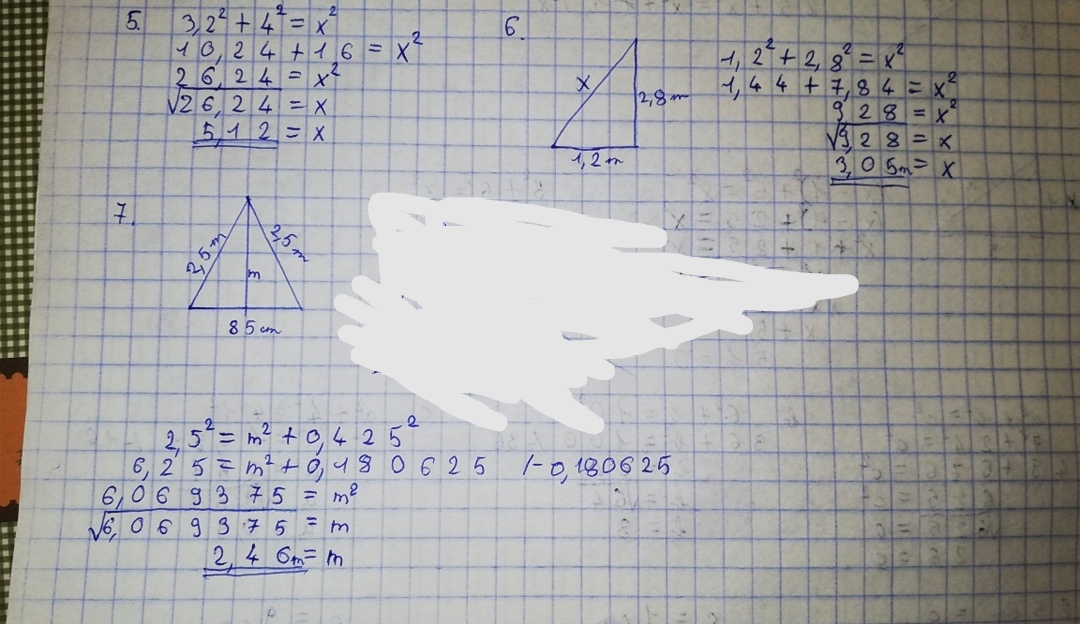 5. 3,2² + 4² = x²
10,24 + 16 = x²
26,24 = x²
√26,24 = x
5,12 = x
6.
x
2,8 m
1,2 m
1,2² + 2,8² = x²
1,44 + 7,84 = x²
9,28 = x²
√9,28 = x
3,05m = x
7.
2,5 m
2,5 m
m
85 cm
2,5² = m² + 0,425²
6,25 = m² + 0,180625 /-0,180625
6,069375 = m²
√6,069375 = m
2,46m = m